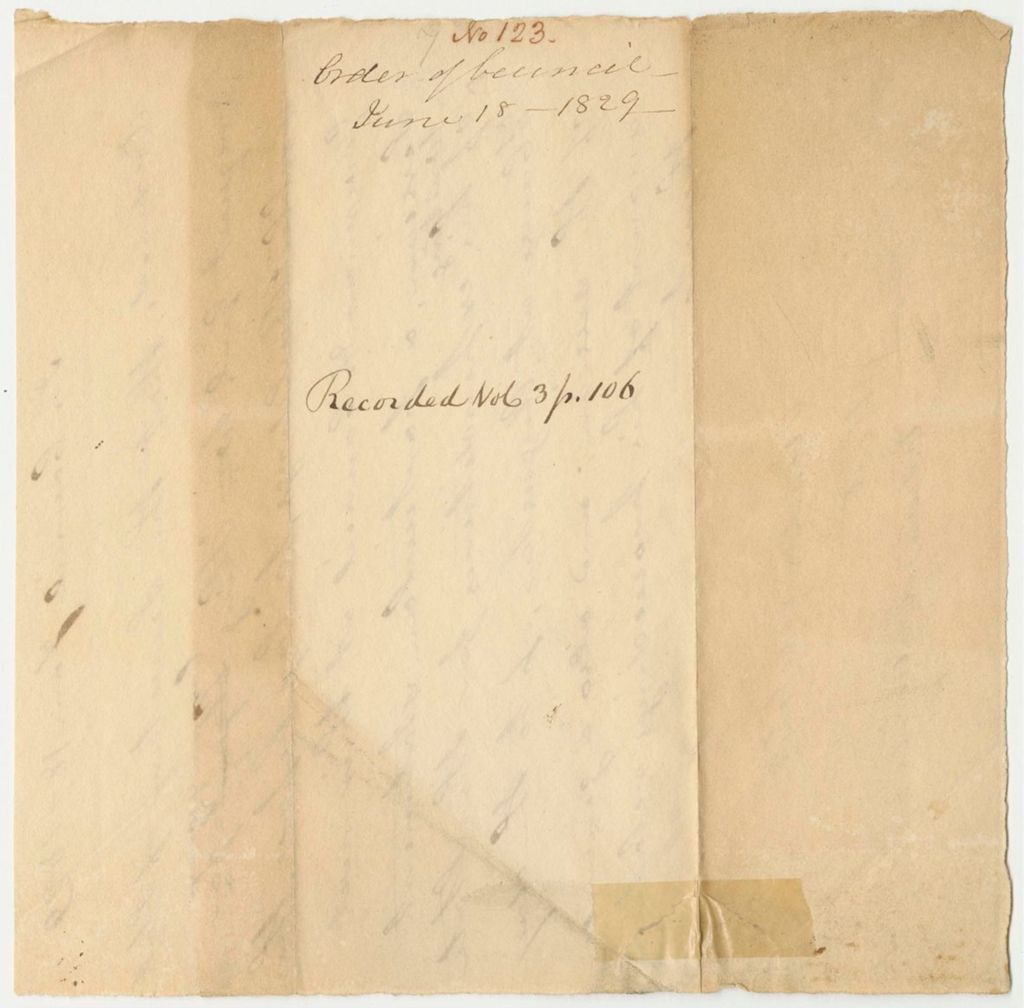 No 123.
Order of Council
June 18 - 1829
Recorded Vol 3 p. 106